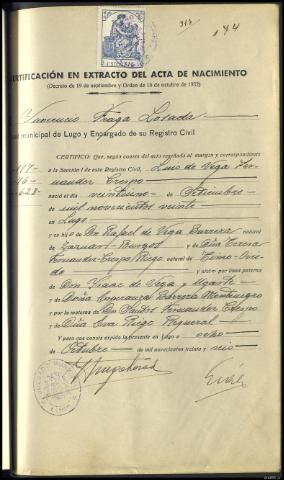 144
CERTIFICACIÓN EN EXTRACTO DEL ACTA DE NACIMIENTO
(Decreto de 19 de septiembre y Orden de 13 de octubre de 1932)
Fraga Losada
municipal de Lugo y Encargado de su Registro Civil
CERTIFICO: Que, según consta del acta reseñada al margen y correspondiente
a la Sección 1.ª de este Registro Civil, Luis de Vega Fer-
nandez Crespo
nació el día veintiuno de Setiembre
de mil novecientos veinte
en Lugo
y es hijo de Don Rafael de Vega Barrera natural
de Burgos y de Doña Teresa
Fernandez-Crespo Riego natural de Tineo-Ovie-
do y nieto por línea paterna
de Don Isaac de Vega y
y de Doña Esperanza Barrera Montenegro
y por la materna de Don Santos Fernandez Crespo
y de Doña Eva Riego Pegueral
Y para que conste expido la presente en Lugo a ocho
de Octubre de mil novecientos treinta y seis